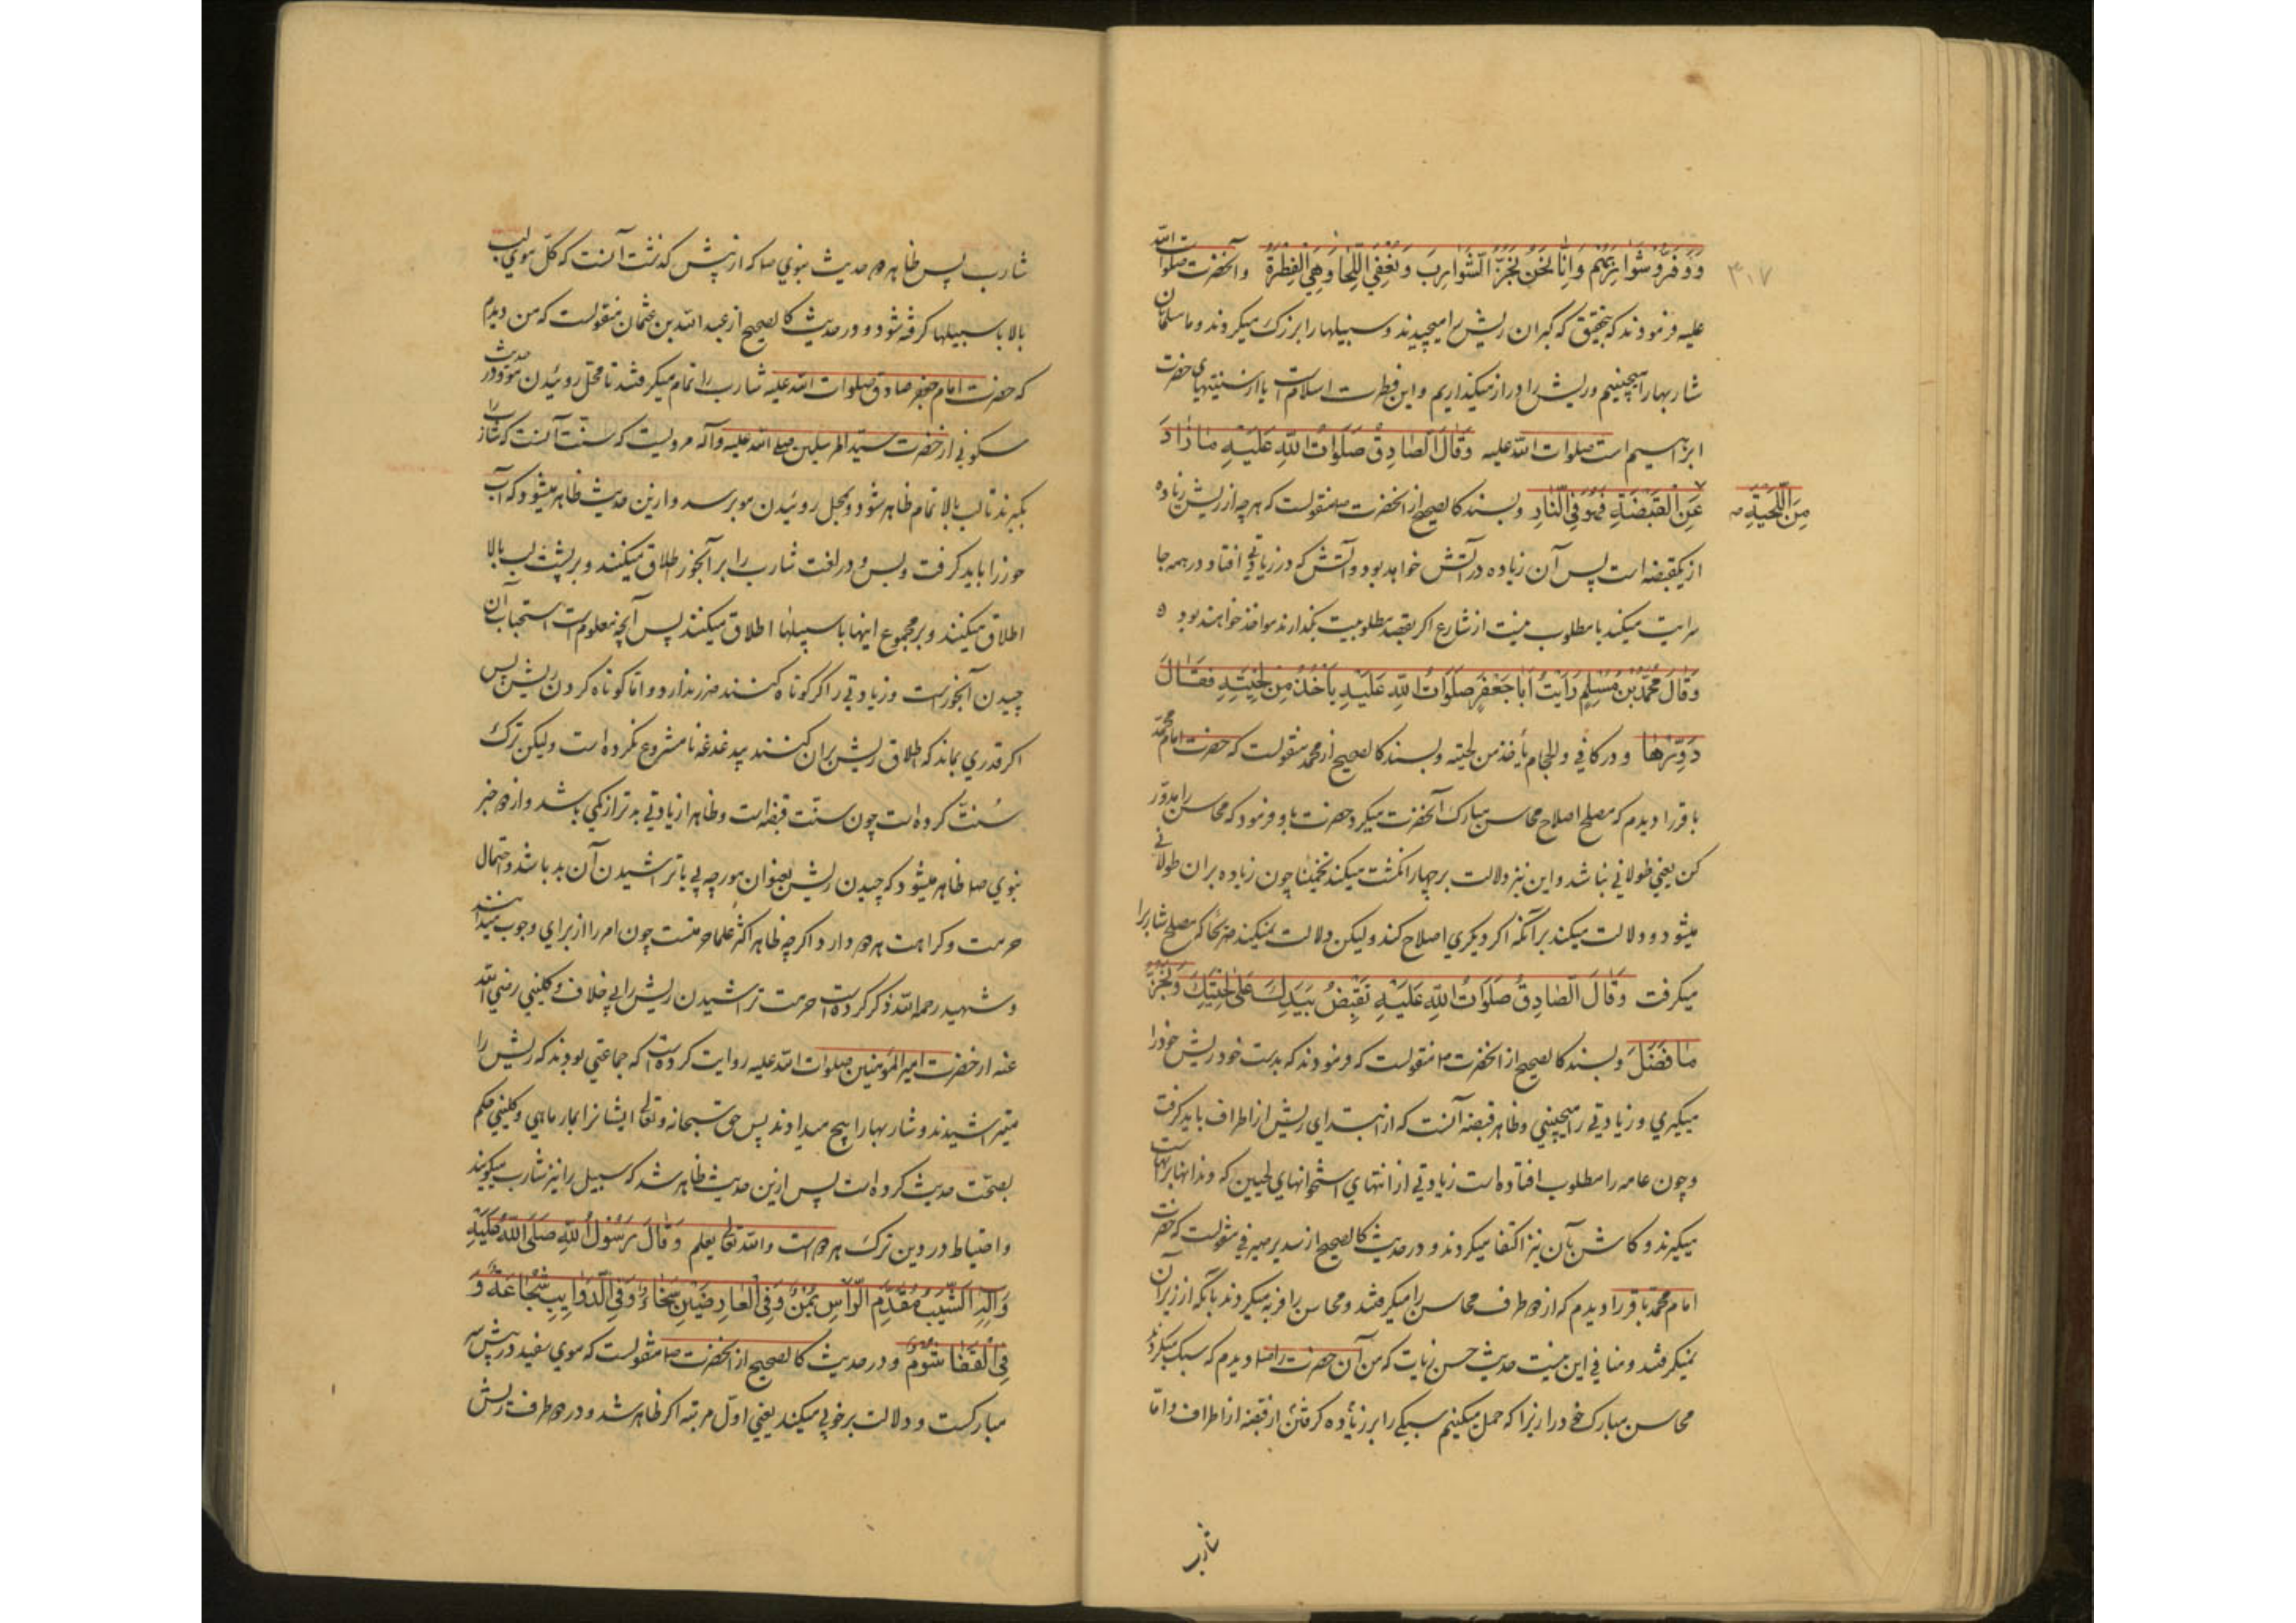 ۳۰۷
وَوَفَّرُوا شَوارِبَهُمْ وَاِنّا نَحْنُ نَجُزُّ الشَّوارِبَ وَنُعْفِي اللِّحا وَهِيَ الفِطْرَةُ وآنحضرت صلوات الله
علیه فرمودند که بتحقیق که گبران ریش را میچیدند و سبیلها را بزرگ میکردند و ما مسلمانان
شاربها را میچینیم و ریش را دراز میکذاریم و این فطرت اسلامست یا از سنتهای حضرت
ابراهیم است صلوات الله علیه وَقالَ الصّادِقُ صَلَواتُ اللهِ عَلَيْهِ مازادَ
مِنَ اللِّحْيَةِ صح
عَنِ القَبْضَةِ فَهُوَ فِي النّارِ وبسند کالصحیح از آنحضرت ص منقولست که هر چه از ریش زیاده
از یکقبضه است پس آن زیاده در آتش خواهد بود و آتش که در زیادتی افتاد در همه جا
سرایت میکند یا مطلوب نیست از شارع اکر بقصد مطلوبیت بکذارند مواخذ خواهند بود ٥
وَقالَ مُحَمَّدُ بْنُ مُسْلِمٍ رَاَيْتُ اَبا جَعْفَرٍ صَلَواتُ اللهِ عَلَيْهِ يَاْخُذُ مِنْ لِحْيَتِهِ فَقالَ
دَوِّرُها و در کافی والحجام یأخذ من لحیته وبسند کالصحیح از محمد منقولست که حضرت امام محمد
باقر را دیدم که مصلح اصلاح محاسن مبارک آنحضرت میکرد حضرت باو فرمود که محاسن را مدوّر
کن یعنی طولانی نباشد و این نیز دلالت بر چهار انکشت میکند تخمینا چون زیاده بران طولانی
میشود و دلالت میکند بر آنکه اکر دیکری اصلاح کند ولیکن دلالت نمیکند صریحا که مصلح شاربرا
میکرفت وَقالَ الصّادِقُ صَلَواتُ اللهِ عَلَيْهِ تَقْبِضُ بِيَدِكَ عَلى لِحْيَتِكَ وَتَجُزُّ
ما فَضَلَ وبسند کالصحیح از آنحضرت ص منقولست که فرمودند که بدست خود ریش خود را
میکیری و زیادتی را میچینی و ظاهر قبضه آنست که از ابتدای ریش از اطراف باید کرفت
و چون عامه را مطلوب افتاده است زیادتی از انتهای استخوانهای لحیین که دندانها برانهاست
میکیرند و کاش بآن نیز اکتفا میکردند و در حدیث کالصحیح از سدیر صیرفی منقولست که حضرت
امام محمد باقر را دیدم که از دو طرف محاسن را میکرفتند و محاسن را فربه میکردند بآنکه از زیر آن
نمیکرفتند و منافی این نیست حدیث حسن زیات که من آن حضرت را ص دیدم که سبک میکردند
محاسن مبارک خود را زیرا که حمل میکنیم سبکی را بر زیاده کرفتن از قبضه از اطراف و امّا
شارب
شارب پس ظاهر دو حدیث نبوی ص که از پیش کذشت آنست که کلّ موی لب
بالا با سبیلها کرفته شود و در حدیث کالصحیح از عبد الله بن عثمان منقولست که من دیدم
که حضرت امام جعفر صادق صلوات الله علیه شارب را تمام میکرفتند تا محل روئیدن مو و در حدیث
سکونی از حضرت سید المرسلین صلی الله علیه وآله مرویست که سنت آنست که شارب را
بکیرند تا لب بالا تمام ظاهر شود و بمحل روئیدن مو برسد و ازین حدیث ظاهر میشود که آب
خور را باید کرفت و بس و در لغت شارب را بر آبخور اطلاق میکنند و بر پشت لب بالا
اطلاق میکنند و بر مجموع اینها با سبیلها اطلاق میکنند پس آنچه معلومست استحباب آن
چیدن آبخورست و زیادتی را اکر کوتاه کنند ضرر ندارد و امّا کوتاه کردن ریش پس
اکر قدری بماند که اطلاق ریش بران کنند بیدغدغه نامشروع نکرده است ولیکن ترک
سنّت کرده است چون سنّت قبضه است و ظاهرا زیادتی بدتر از کمی باشد و از دو خبر
نبوی ص ظاهر میشود که چیدن ریش بعنوان مورچه پی یا تراشیدن آن بد باشد و احتمال
حرمت و کراهت هر دو دارد اکر چه ظاهر اکثر علما حرمتست چون امر را از برای وجوب میدانند
و شهید رحمه الله ذکر کرده است حرمت تراشیدن ریش را بی خلاف و کلینی رضی الله
عنه از حضرت امیر المؤمنین صلوات الله علیه روایت کرده است که جماعتی بودند که ریش را
میتراشیدند و شاربها را پیچ میدادند پس حق سبحانه وتعالی ایشانرا مار ماهی و کلینی حکم
بصحّت حدیث کرده است پس ازین حدیث ظاهر شد که سبیل را نیز شارب میکویند
و احتیاط در دین ترک هر دو است والله تعالی یعلم وَقالَ رَسُولُ اللهِ صَلَّى اللهُ عَلَيْهِ
وَآلِهِ الشَّيْبُ فِي مُقَدَّمِ الرَّأسِ يُمْنٌ وَفِي العارِضَيْنِ سَخاءٌ وَفِي الذَّوائِبِ شَجاعَةٌ وَ
فِي القَفا شُومٌ و در حدیث کالصحیح از آنحضرت ص منقولست که موی سفید در پیش سر
مبارکست و دلالت بر خوبی میکند یعنی اول مرتبه اکر ظاهر شد و در دو طرف ریش